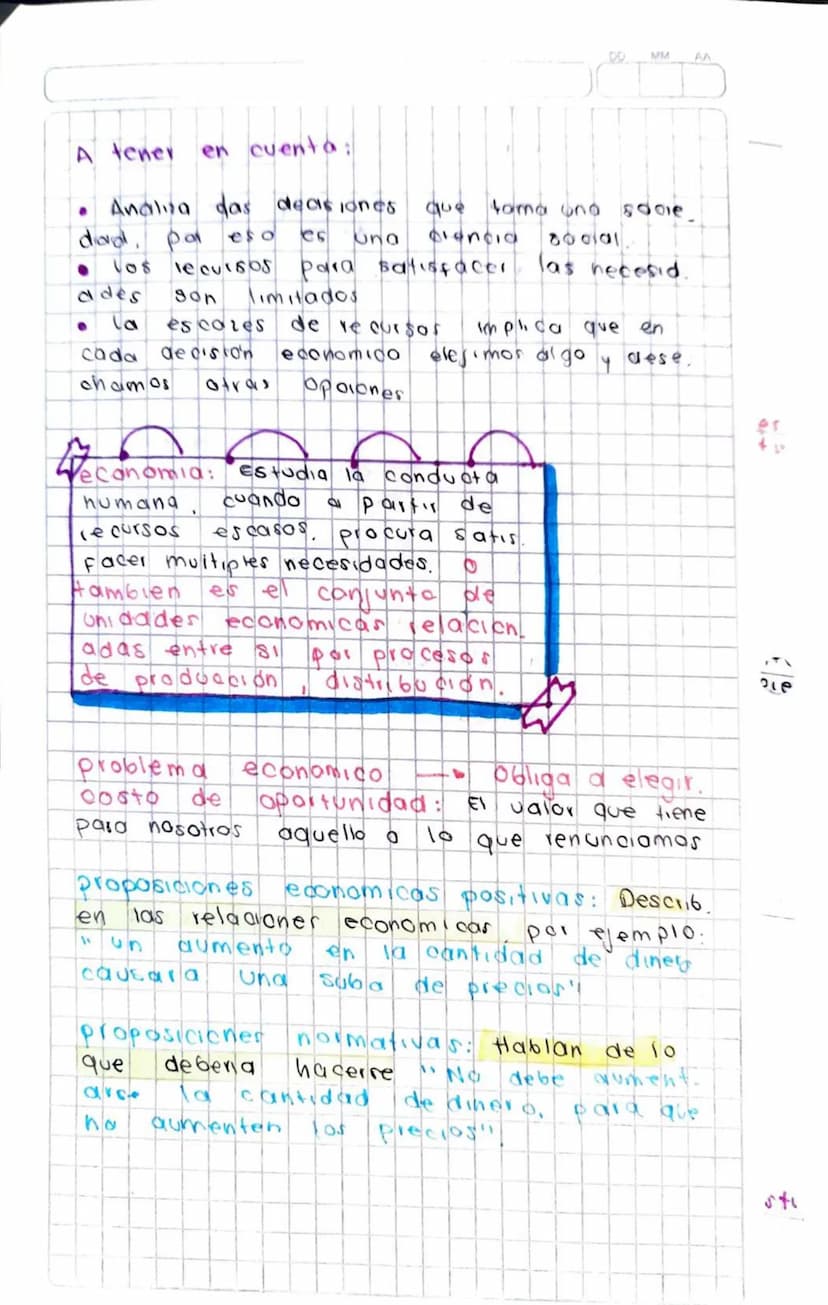 DD MM AA
A tener en cuenta:
• Analiza das decisiones que toma una socie_
dad, por eso es una ciencia social.
• los recursos para satisfacer las necesid.
ades son limitados
• la escazes de recursos implica que en
cada decisión economica elejimos algo y dese.
chamos otras opciones
economia: Estudia la conducta
humana, cuando a partir de
recursos escasos, procura satis.
facer multiples necesidades. o
tambien es el conjunto de
unidades economicas relacion_
adas entre si por procesos
de producción, distribución.
problema economico → Obliga a elegir.
costo de oportunidad: El valor que tiene
para nosotros aquello a lo que renunciamos
proposiciones economicas positivas: Describ.
en las relaciones economicas, por ejemplo:
"un aumento en la cantidad de dinero
causara una suba de precios"
proposiciones normativas: Hablan de lo
que deberia hacerse "No debe aument.
arse la cantidad de dinero, para que
no aumenten los precios".